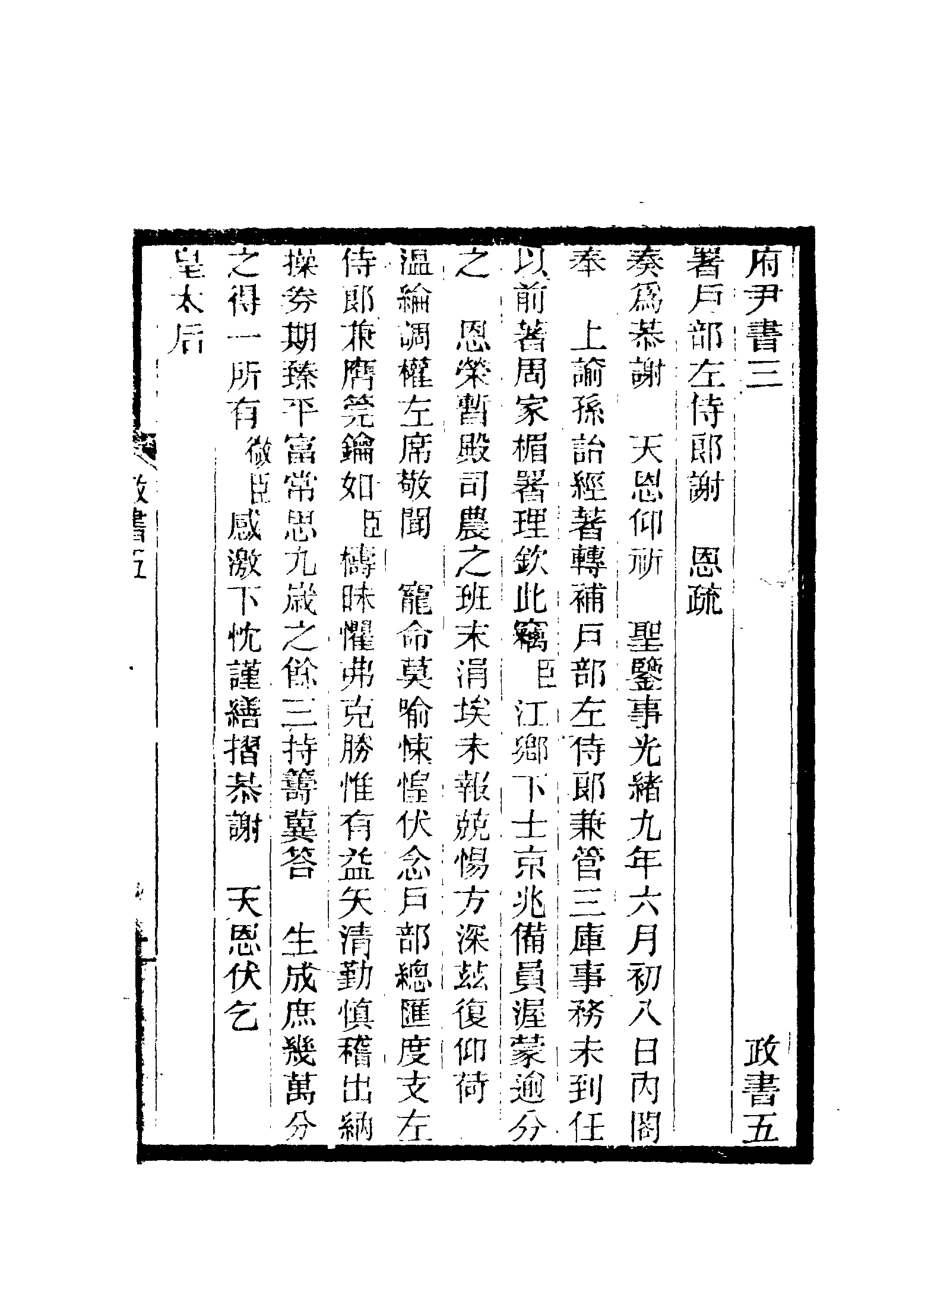 府尹書三 政書五
署戶部左侍郎謝 恩疏
奏爲恭謝 天恩仰祈 聖鑒事光緒九年六月初八日內閣
奉 上諭孫詒經著轉補戶部左侍郎兼管三庫事務未到任
以前著周家楣署理欽此竊臣江鄉下士京兆備員渥蒙逾分
之 恩榮暫殿司農之班末涓埃未報兢惕方深茲復仰荷
溫綸調權左席敬聞 寵命莫喻悚惶伏念戶部總匯度支左
侍郎兼膺筦鑰如臣檮昧懼弗克勝惟有益矢清勤慎稽出納
操劵期臻平富常思九歲之餘三持籌冀答 生成庶幾萬分
之得一所有微臣感激下忱謹繕摺恭謝 天恩伏乞
皇太后
政書五